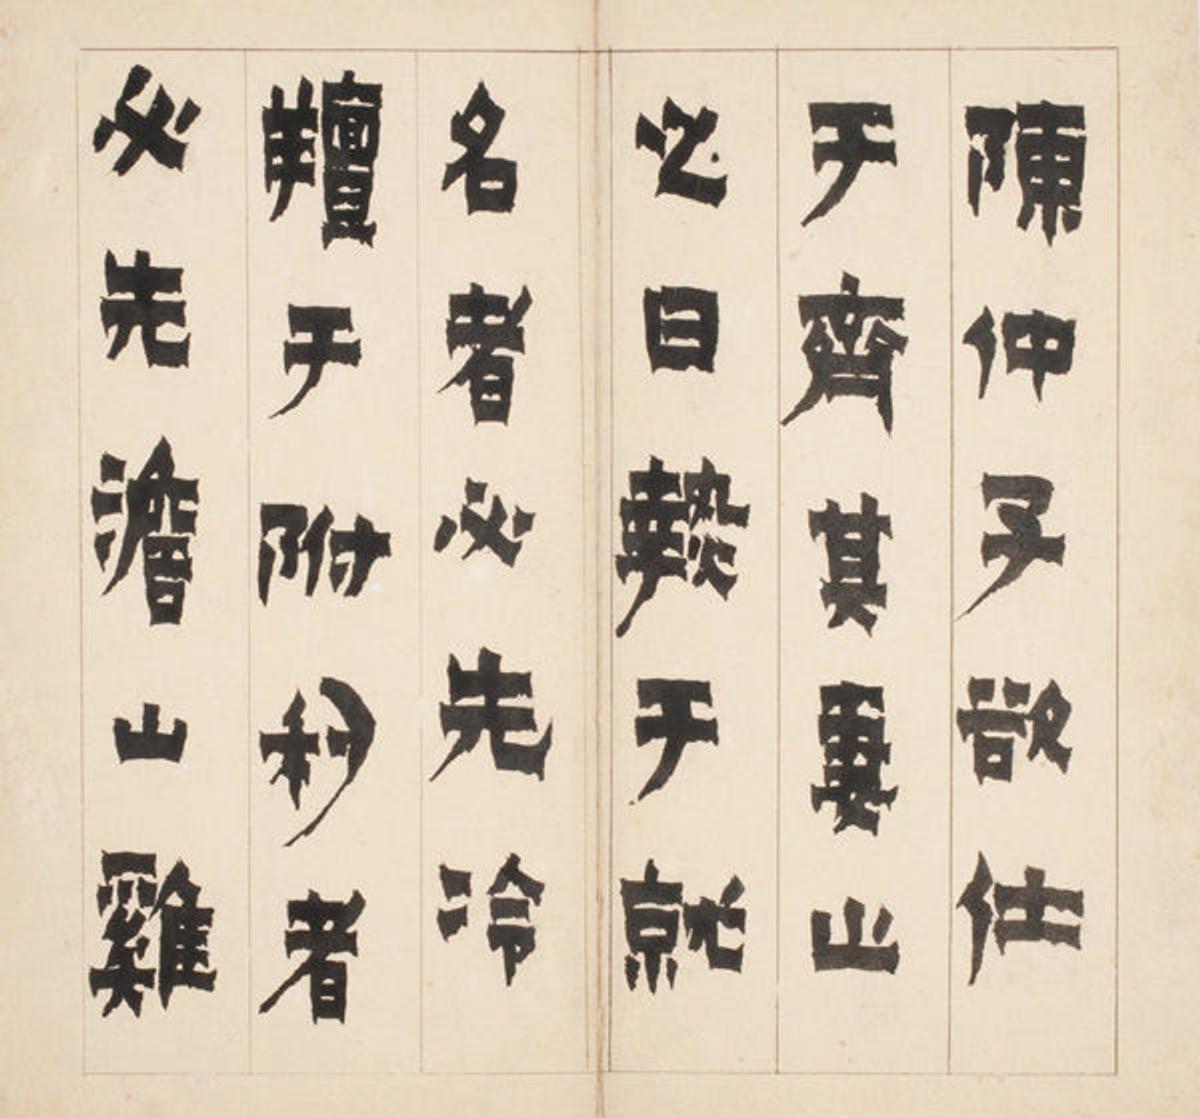 陳仲子欲仕
于齊其妻止
之曰熱于就
名者必先冷
羶于附利者
必先澹山雞